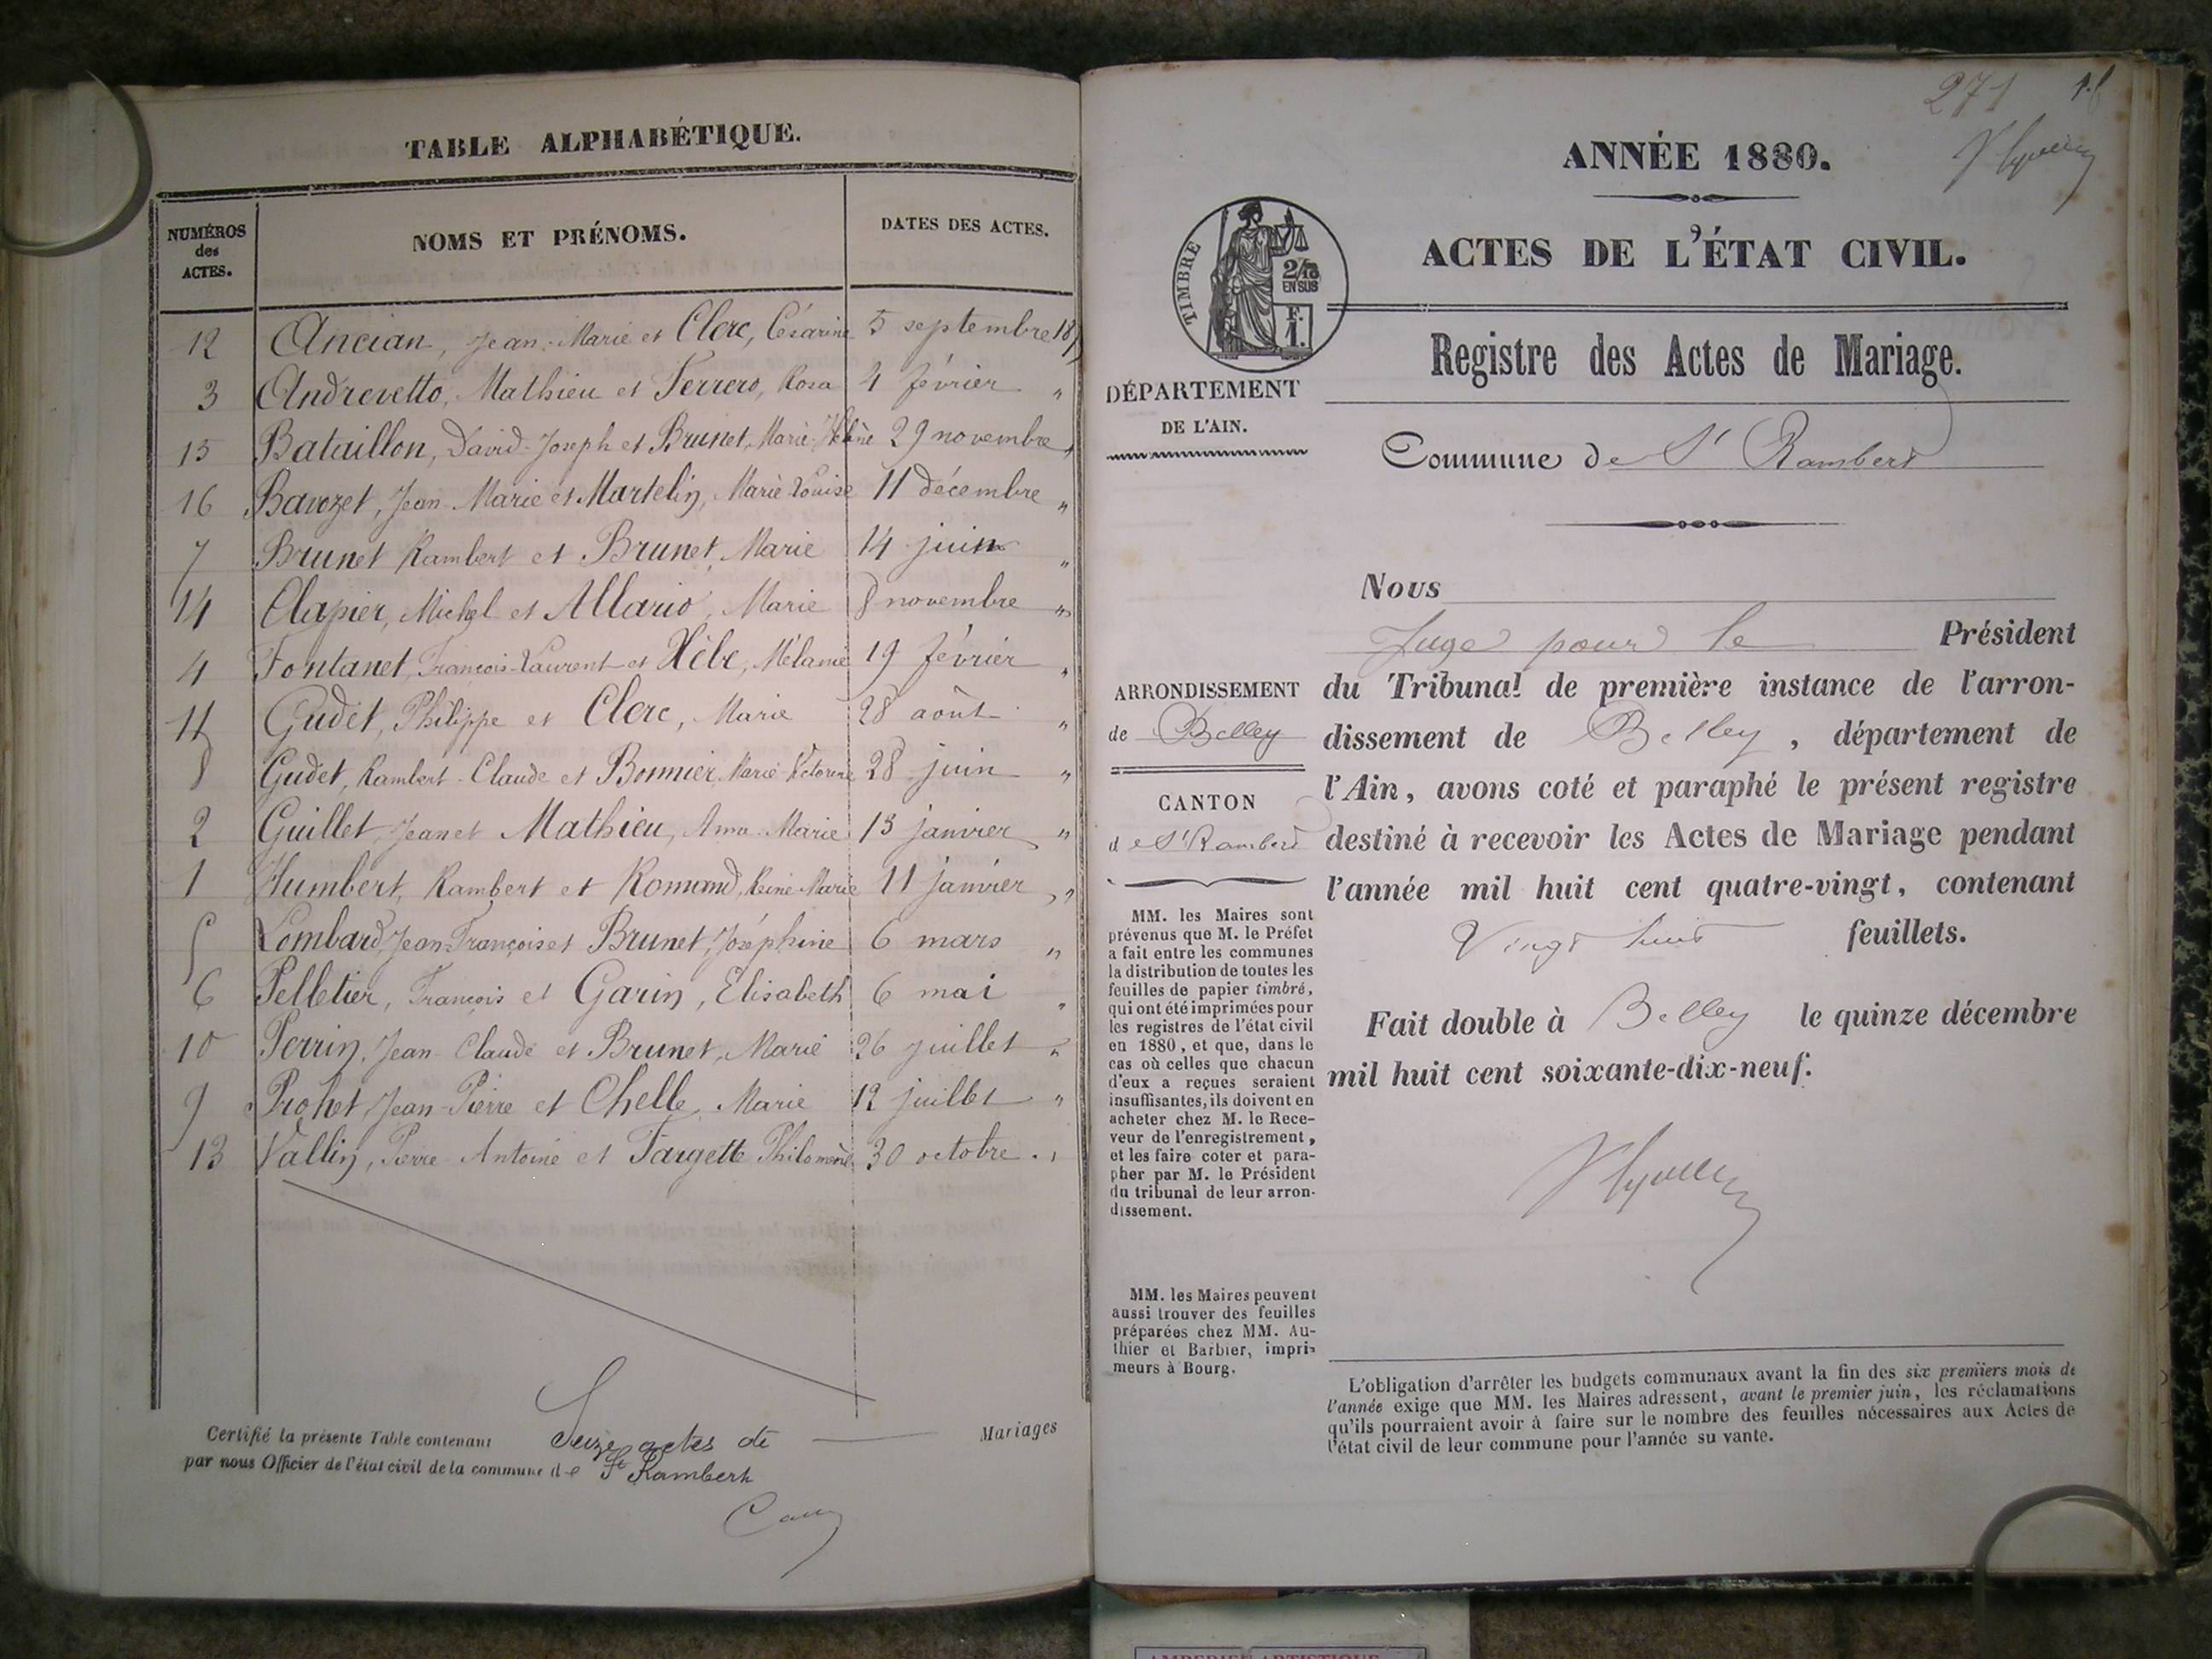 TABLE ALPHABÉTIQUE.
NUMÉROS des ACTES.
NOMS ET PRÉNOMS.
DATES DES ACTES.
12 Ancian, Jean-Marie et Clerc, Césarine 5 septembre 18
3 Andrevetto, Mathieu et Ferrero, Rosa 4 février "
15 Bataillon, David-Joseph et Brunet, Marie-Hélène 29 novembre "
16 Bavozet, Jean-Marie et Martelin, Marie-Louise 11 décembre "
7 Brunet Rambert et Brunet, Marie 14 juin "
14 Clapier, Michel et Allario, Marie 8 novembre "
4 Fontanet, François-Laurent et Hèbe, Mélanie 19 février "
11 Gudet, Philippe et Clerc, Marie 28 août "
8 Gudet, Rambert-Claude et Bonnier, Marie-Victorine 28 juin "
2 Guillet, Jean et Mathieu, Anne-Marie 13 janvier "
1 Humbert, Rambert et Romand, Reine-Marie 11 janvier "
5 Lombard, Jean-François et Brunet, Joséphine 6 mars "
6 Pelletier, François et Garin, Elisabeth 6 mai "
10 Perrin, Jean-Claude et Brunet, Marie 26 juillet "
9 Prohet, Jean-Pierre et Chelle, Marie 12 juillet "
13 Vallin, Pierre-Antoine et Fargette Philomène 30 octobre "
Certifié la présente Table contenant Seize actes de Mariages
par nous Officier de l'état civil de la commune de St Rambert
271
ANNÉE 1880.
ACTES DE L'ÉTAT CIVIL.
TIMBRE
2/10
EN SUS
F.
1.
Registre des Actes de Mariage.
DÉPARTEMENT
DE L'AIN.
Commune de St Rambert
Nous
Juge pour le Président
ARRONDISSEMENT
de Belley
CANTON
de St Rambert
du Tribunal de première instance de l'arron-
dissement de Belley, département de
l'Ain, avons coté et paraphé le présent registre
destiné à recevoir les Actes de Mariage pendant
l'année mil huit cent quatre-vingt, contenant
Vingt huit feuillets.
Fait double à Belley le quinze décembre
mil huit cent soixante-dix-neuf.
MM. les Maires sont
prévenus que M. le Préfet
a fait entre les communes
la distribution de toutes les
feuilles de papier timbré,
qui ont été imprimées pour
les registres de l'état civil
en 1880, et que, dans le
cas où celles que chacun
d'eux a reçues seraient
insuffisantes, ils doivent en
acheter chez M. le Rece-
veur de l'enregistrement,
et les faire coter et para-
pher par M. le Président
du tribunal de leur arron-
dissement.
MM. les Maires peuvent
aussi trouver des feuilles
préparées chez MM. Au-
thier et Barbier, impri-
meurs à Bourg.
L'obligation d'arrêter les budgets communaux avant la fin des six premiers mois de
l'année exige que MM. les Maires adressent, avant le premier juin, les réclamations
qu'ils pourraient avoir à faire sur le nombre des feuilles nécessaires aux Actes de
l'état civil de leur commune pour l'année su vante.